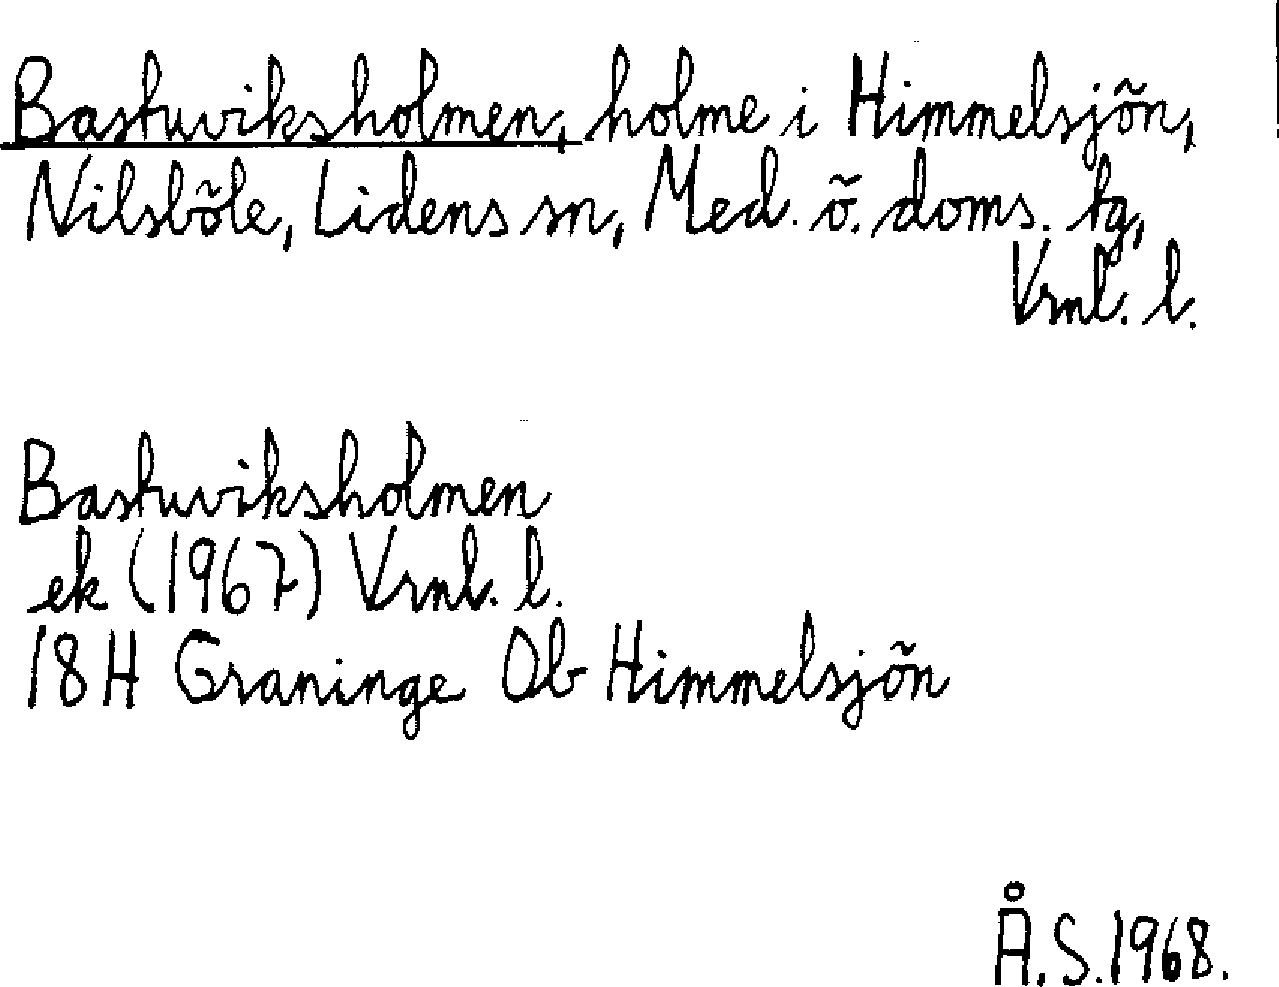 Bastuviksholmen, holme i Himmelsjön,
Nilsböle, Lidens sn, Med. ö. doms. tg,
Vrnl. l.
Bastuviksholmen
ek (1967) Vrnl. l.
18H Graninge Ob Himmelsjön
Å. S. 1968.